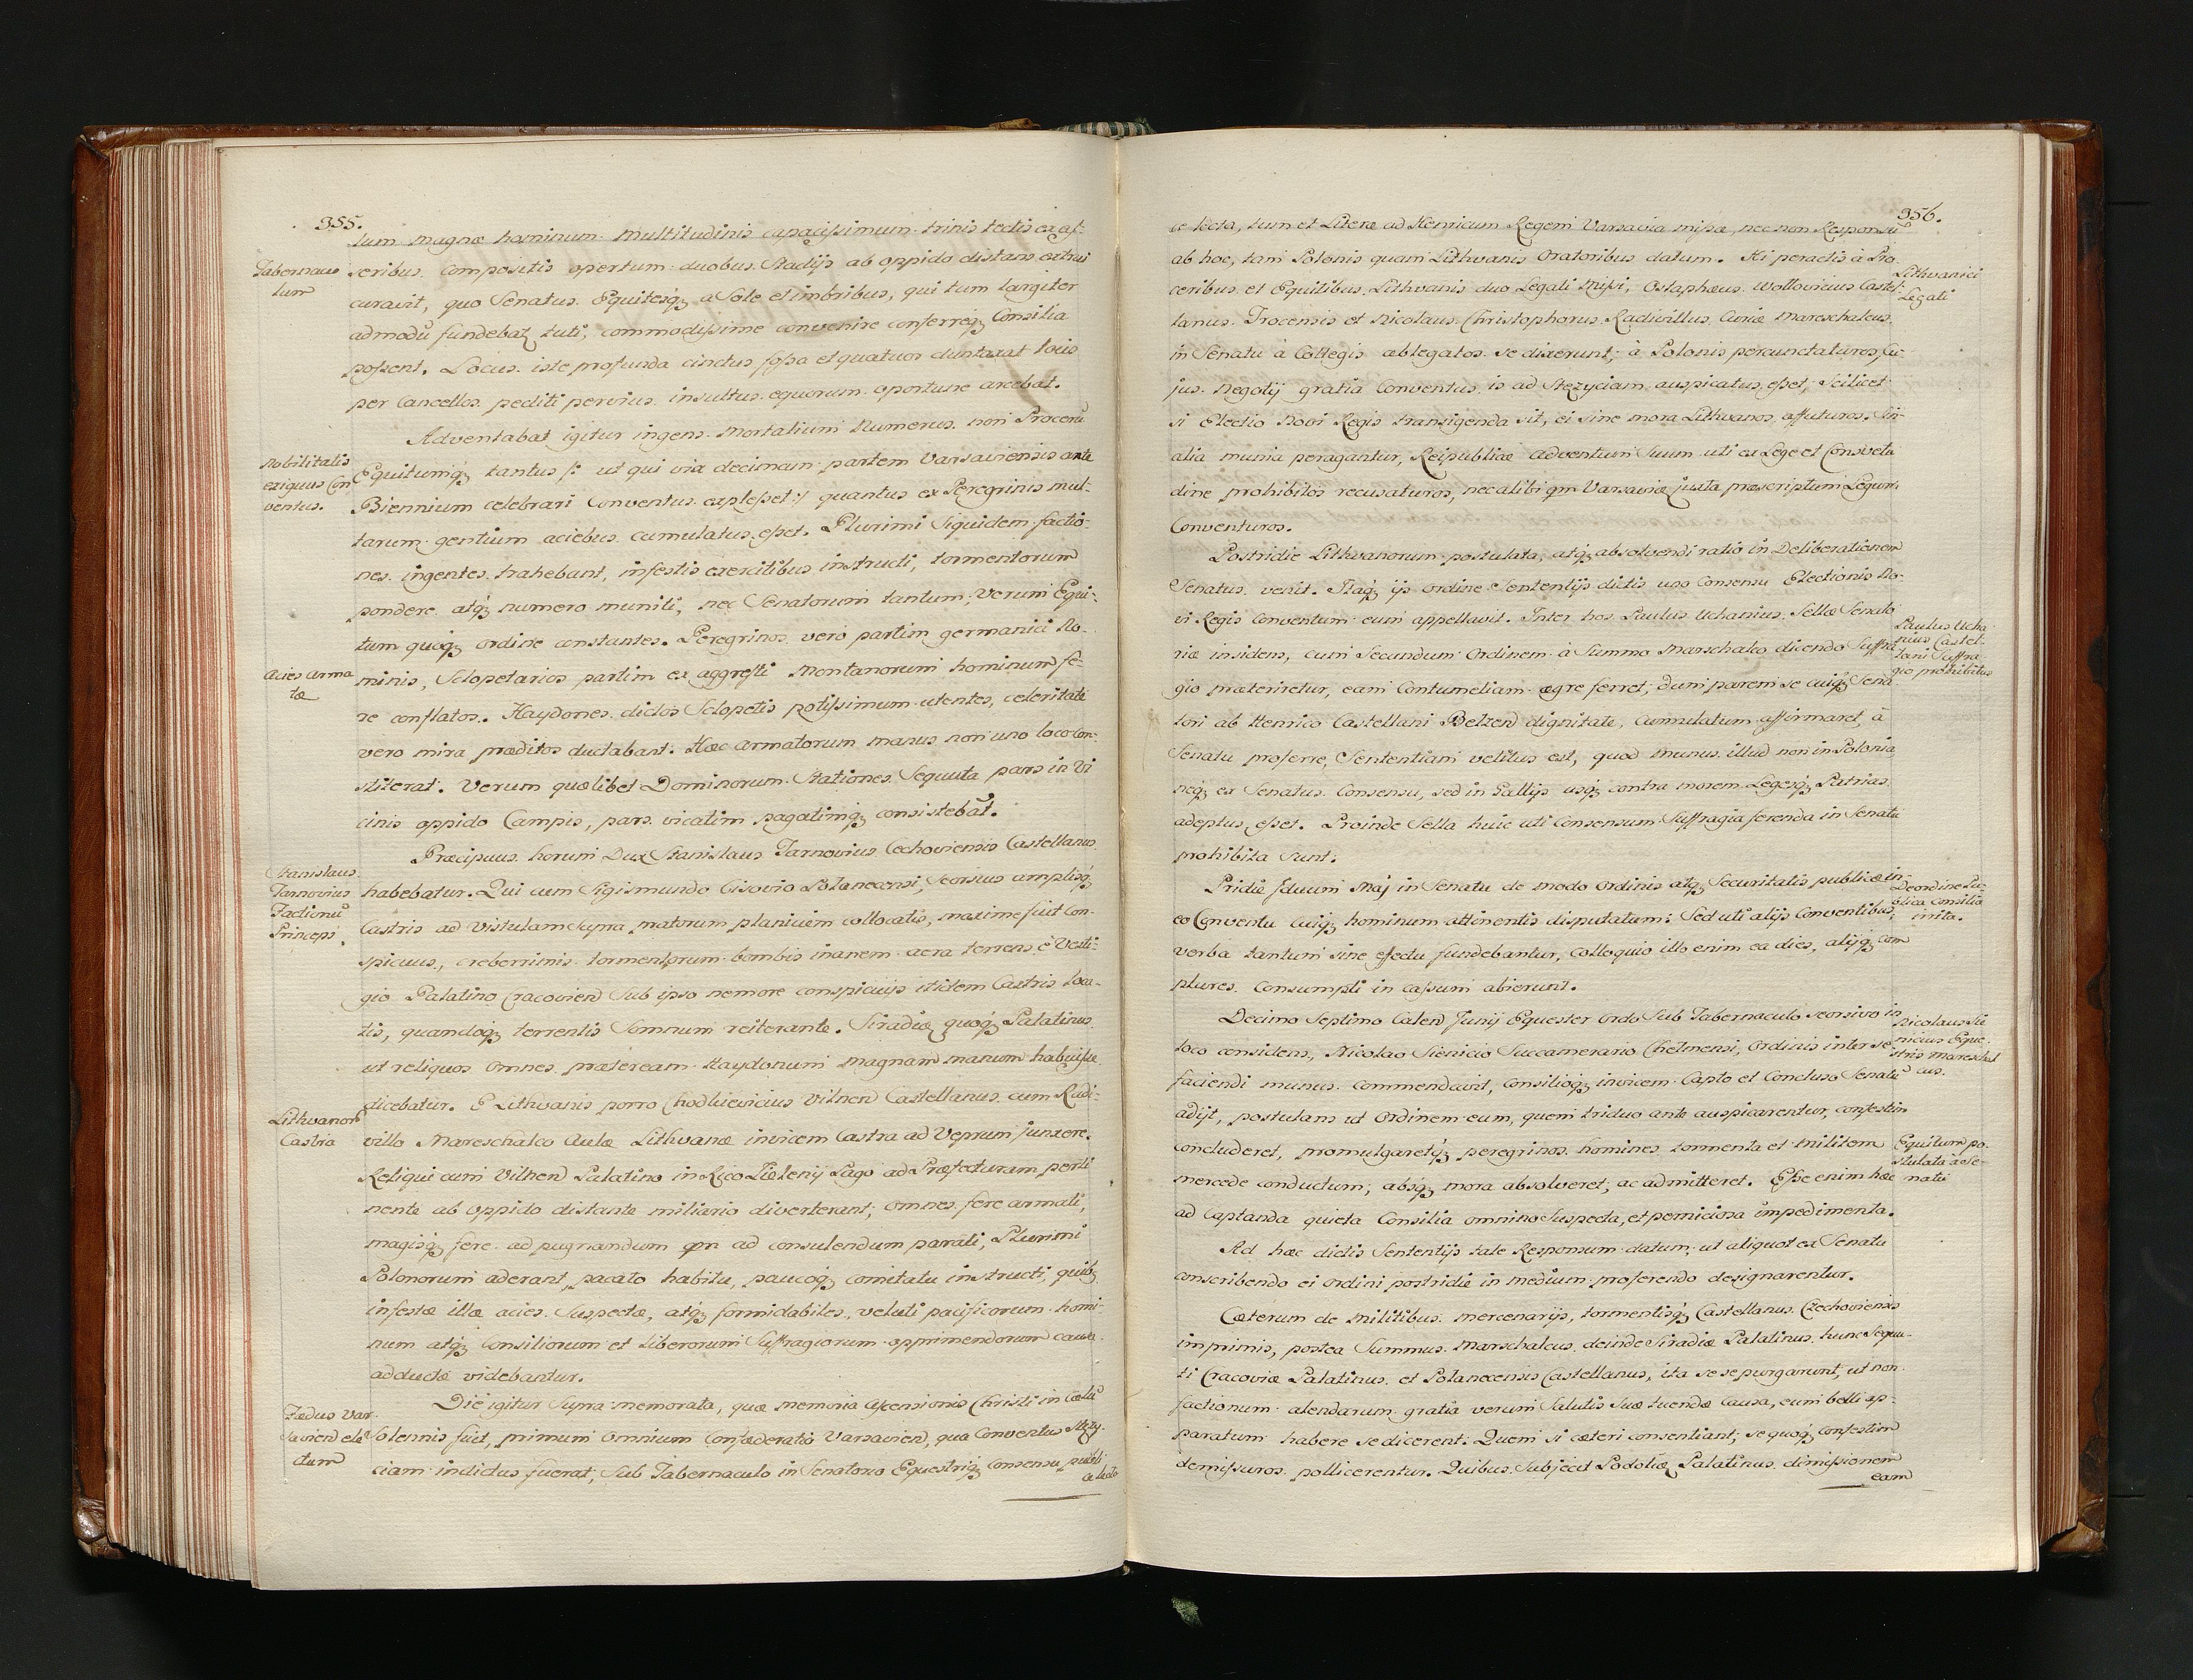 355.
tum magnæ hominum multitudinis capacissimum trinis tectis ex as-
Tabernacu
lum
seribus compositis opertum duobus Stadijs ab oppido distans extrui
curavit, quo Senatus Equitesq; a Sole et imbribus, qui tum largiter
admodũ fundebat tuti, commodissime convenire conferreq; Consilia
possent. Locus iste profunda cinctus fossa et quatuor duntaxat locis
per Cancellos pediti pervius insultus equorum oportune arcebat.
Adventabat igitur ingens Mortalium Numerus non Procerũ
Nobilitatis
exiguus Con
ventus.
Equitumq; tantus /: ut qui vix decimam partem Varsaviensis ante
Biennium celebrari Conventus explesset :/ quantus ex Peregrinis mul-
tarum gentium aciebus cumulatus esset. Plurimi Siquidem factio-
nes ingentes trahebant, infestis exercitibus instructi, tormentorum
pondere atq; numero muniti, nec Senatorum tantum, Verum Equi-
tum quoq; ordine constantes. Peregrinos vero partim germanici No-
Acies Arma
tæ
minis, Sclopetarios partim ex aggresti Montanorum hominum fe-
re conflatos. Haydones dictos Sclopetis potissimum utentes, celeritate
vero mira præditos ductabant. Hæc armatorum manus non uno loco con-
stiterat. Verum quælibet Dominorum Stationes Sequuta pars in Vi
cinis oppido Campis, pars vicatim pagatimq; consistebãt.
Præcipuus horum Dux Stanislaus Tarnovius Czechoviensis Castellanus
Stanislaus
Tarnovius
Factionũ
Princeps.
habebatur. Qui cum Sigismundo Cisovio Polanecensi, Seorsus amplisq;
Castris ad Vistulam supra matorum planiciem collocatis, maxime fuit Con-
spicuus, creberrimis tormentorum bombis inanem aera terrens è Vesti-
gio Palatino Cracovien Sub ipso nemore conspicuijs itidem Castris loca-
tis, quandoq; terrentis Somnum reiterante. Siradiæ quoq; Palatinus
ut reliquos omnes præteream Haydonum magnam manum habuisse
dicebatur. E Lithvanis porro Chodkievicius Vilnen Castellanus cum Radi-
Lithvanorũ
Castra
villo Mareschalco Aulæ Lithvanæ invicem Castra ad Veprum junxere.
Reliqui cum Vilnen Palatino in Rico Pago ad Præfecturam perti
nente ab oppido distante miliario diverterant; omnes fere armati,
magisq; fere ad pugnandum qm ad consulendum parati, Plurimi
Polonorum aderant pacato habitu, paucoq; comitatu instructi, quib;
infestæ illæ acies Suspectæ, atq; formidabiles, veluti pacificorum homi-
num atq; Consiliorum et Liberorum Suffragiorum opprimendorum causa
adductæ videbantur.
Die igitur Supra memorata, quæ memoria Ascensionis Christi in Cælũ
Fædus Var
savien ele
ctum
Solennis fuit, primum omnium Confæderatio Varsavien, qua Conventus Stezy-
ciam indictus fuerat, Sub Tabernaculo in Senatorio Equestriq; consensu publi
ce lecto
356.
ce lecta, tum et Literæ ad Henricum Regem Varsavia missæ, nec non Responsũ
ab hoc, tam Polonis quam Lithvanis Oratoribus datum. Hi peractis à Pro-
Lithvanici
Legati
ceribus et Equitibus Lithvanis duo Legati missi, Ostaphæus Wollovicius Castel-
lanus Trocensis et Nicolaus Christophorus Radivillus Curiæ Mareschalcus
in Senatu à Collegis ablegatos se dixerunt; à Polonis percunctaturos, Cu-
jus Negotij gratia Conventus is ad Stezyciam auspicatus esset; Scilicet
si Electio Novi Regis transigenda sit, ei sine mora Lithvanos affuturos. Sin
alia munia peragantur, Reipublicæ adventum Suum uti ex Lege et Consvetu
dine prohibitos recusaturos, nec alibi qm Varsaviæ juxta præscriptum Legum
Conventuros.
Postridie Lithvanorum postulata, atq; absolvendi ratio in Deliberationem
Senatus venit. Itaq; ijs ordine Sententijs dictis uno Consensu Electionis No-
vi Regis Conventum eum appellavit. Inter hos Paulus Uchanius Sellæ Senato
Paulus Ucha-
nius Castel-
lani Suffra
gio prohibitus
riæ insidens, cum Secundum Ordinem à Summo Marschalco dicendo Suffra
gio præteriretur, eam Contumeliam ægre ferret, dum parem se cuiq; Sena
tori ab Henrico Castellani Belzen dignitate, cumulatum affirmaret, à
Senatu proferre Sententiam vetitus est, quod munus illud non in Polonia,
neq; ex Senatus Consensu, sed in Gallijs usq; contra morem Legesq; Patrias
adeptus esset. Proinde Sella huic uti Consensum Suffragia ferenda in Senatu
prohibita sunt.
Pridie Iduum Maj in Senatu de modo ordinis atq; Securitatis publicæ in
De ordine Pu-
blica Consilia
inita.
eo Conventu cuiq; hominum attinentis disputatum: Sed uti alijs Conventibus,
verba tantum sine effectu fundebantur, colloquio illo enim ea dies, alijq; com
plures Consumpti in cassum abierunt.
Decimo Septimo Calen Junij Equester Ordo Sub Tabernaculo seorsivo in
Nicolaus Sie
nicius Eque-
stris Mareschal
cus.
loco considens, Nicolao Sienicio Succamerario Chelmensi, Ordinis inter se
faciendi munus commendavit, Consilioq; invicem Capto et Concluso Senatũ
adijt, postulans ut Ordinem eum, quem triduo ante auspicarentur, confestim
Equitum po-
stulata à Se-
natu
concluderet, promulgaretq; peregrinos homines tormenta et Militem
mercede conductum; absq; mora absolveret; ac admitteret. Esse enim hæc
ad Captanda quieta Consilia omnino Suspecta, et perniciosa impedimenta.
Ad hæc dictis Sententijs tale Responsum datum, ut aliquot ex Senatu
conscribendo ei ordini postridie in medium proferendo designarentur.
Cæterum de Militibus mercenarijs, tormentisq; Castellanus Czechoviensis
imprimis, postea Summus Marschalcus, deinde Siradiæ Palatinus, hunc Sequu-
ti Cracoviæ Palatinus et Polanecensis Castellanus, ita se se purgarunt, ut non
factionum alendarum gratia verum Salutis Suæ tuendæ Causa, eum belli ap-
paratum habere se dicerent. Quem si cæteri consentiant, se quoq; confestim
demissuros pollicerentur. Quibus Subjecit Podoliæ Palatinus dimissionem
eam